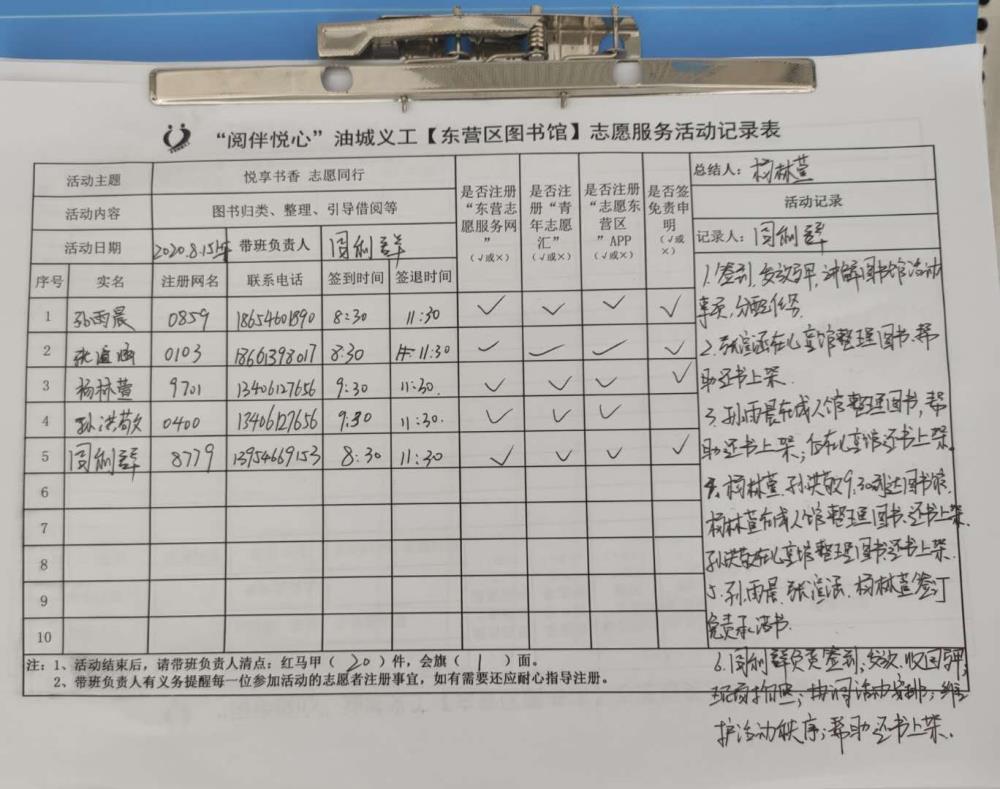 “阅伴悦心”油城义工【东营区图书馆】志愿服务活动记录表
活动主题 悦享书香 志愿同行
活动内容 图书归类、整理、引导借阅等
活动日期 2020.8.15 带班负责人 闫利群
序号 实名 注册网名 联系电话 签到时间 签退时间 是否注册“东营志愿服务网”(√或×) 是否注册“青年志愿汇”(√或×) 是否注册“志愿东营区”APP(√或×) 是否签免责申明(√或×)
1 孙雨晨 0859 18654601890 8:30 11:30 √ √ √ √
2 张渲涵 0103 18661398017 8:30 11:30 √ √ √ √
3 杨林萱 9701 13406127656 9:30 11:30. √ √ √ √
4 孙洪敬 0400 13406127656 9:30 11:30. √ √ √
5 闫利群 8779 13954669153 8:30 11:30 √ √ √ √
6
7
8
9
10
注：1、活动结束后，请带班负责人清点：红马甲（20）件，会旗（1）面。
2、带班负责人有义务提醒每一位参加活动的志愿者注册事宜，如有需要还应耐心指导注册。
总结人：杨林萱
活动记录
记录人：闫利群
1.签到,发放马甲,讲解图书馆活动
事项,分配任务.
2.张渲涵在儿童馆整理图书.帮
助还书上架.
3.孙雨晨在成人馆整理图书,帮
助还书上架;后在儿童馆还书上架.
4.杨林萱.孙洪敬9.30到达图书馆.
杨林萱在成人馆整理图书.还书上架.
孙洪敬在儿童馆整理图书还书上架.
5.孙雨晨.张渲涵.杨林萱签订
免责承诺书.
6.闫利群负责签到,发放.收回马甲;
拍照;协调活动安排;维
护活动秩序;帮助还书上架.